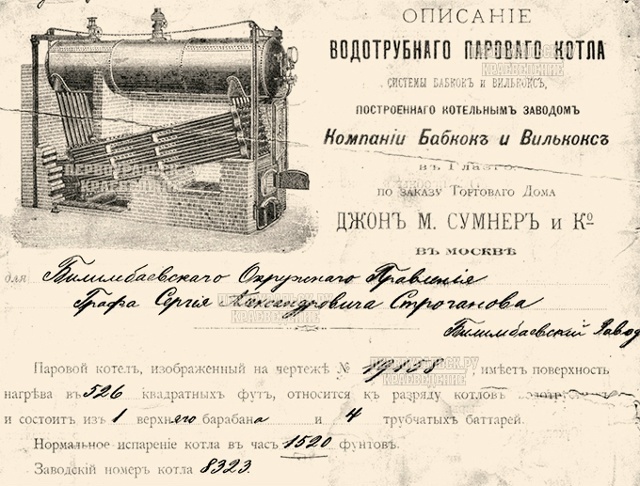 ОПИСАНІЕ
ВОДОТРУБНАГО ПАРОВАГО КОТЛА
СИСТЕМЫ БАБКОКЪ и ВИЛЬКОКСЪ,
ПОСТРОЕННАГО КОТЕЛЬНЫМЪ ЗАВОДОМЪ
Компаніи Бабкокъ и Вилькоксъ
въ Глазго.
ПО ЗАКАЗУ ТОРГОВАГО ДОМА
ДЖОНЪ М. СУМНЕРЪ и Ко
ВЪ МОСКВѢ
для Билимбаевскаго Окружнаго Правленія
Графа Сергія Александровича Строганова
Билимбаевский Завод
Паровой котелъ, изображенный на чертежѣ № , имѣетъ поверхность
нагрѣва въ 526 квадратныхъ футъ, относится къ разряду котловъ
и состоитъ изъ 1 верхняго барабана и 4 трубчатыхъ баттарей.
Нормальное испареніе котла въ часъ 1520 фунтовъ.
Заводскій номеръ котла 8323.
ПЕРВОУРАЛЬСК.РУ
КРАЕВЕДЕНИЕ